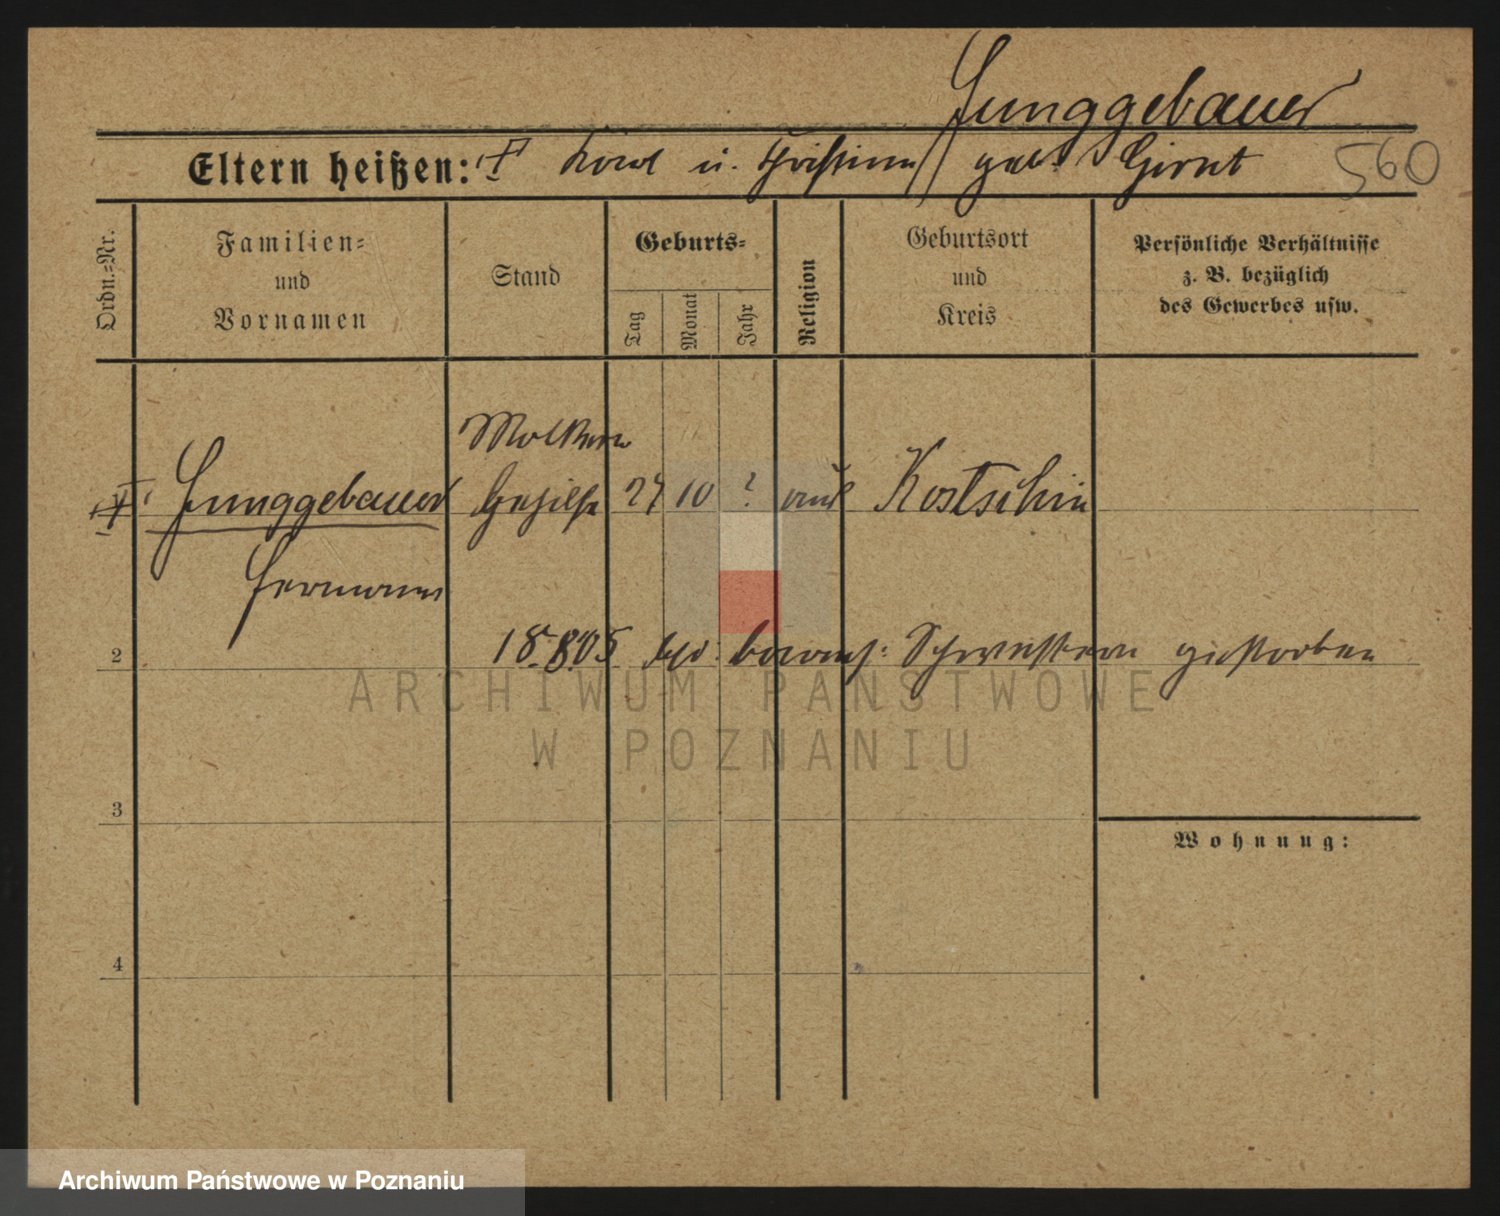 Junggebauer
Eltern heißen: Karl u. Christine geb. Girnt 560
Ordn.-Nr.
Familien-
und
Vornamen
Stand
Geburts-
Tag
Monat
Jahr
Religion
Geburtsort
und
Kreis
Persönliche Verhältnisse
z. B. bezüglich
des Gewerbes usw.
Molkerei
Junggebauer Gehilfe 24 10 ? Kostschin
Hermann
2 18.8.05 Schwestern gestorben
3
Wohnung:
4
ARCHIWUM PAŃSTWOWE
W POZNANIU
Archiwum Państwowe w Poznaniu